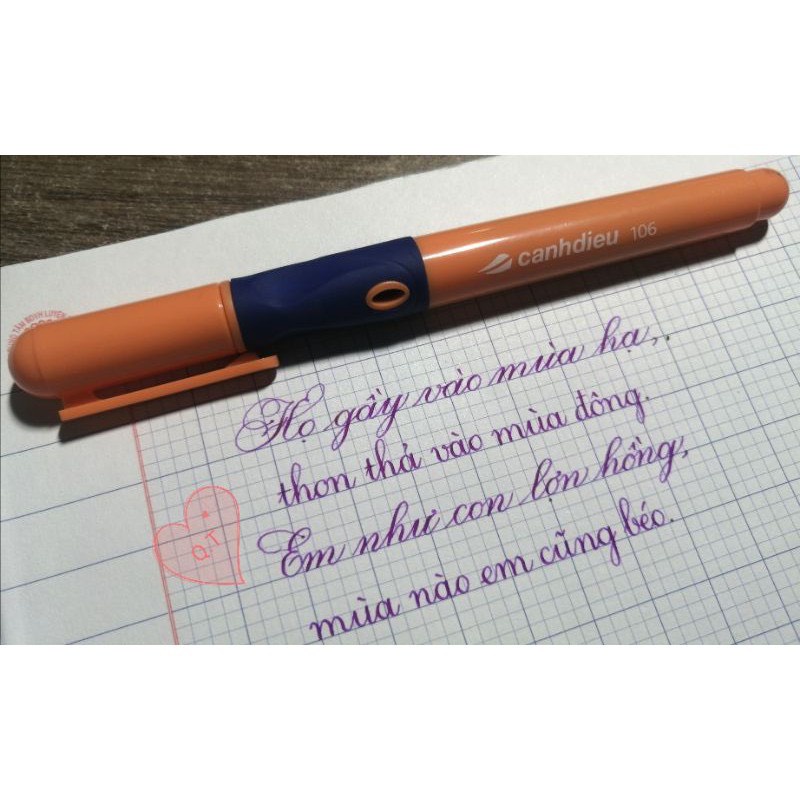 canhdieu 106
Họ gầy vào mùa hạ,.
thon thả vào mùa đông.
Em như con lợn hồng,
mùa nào em cũng béo.
Q.T